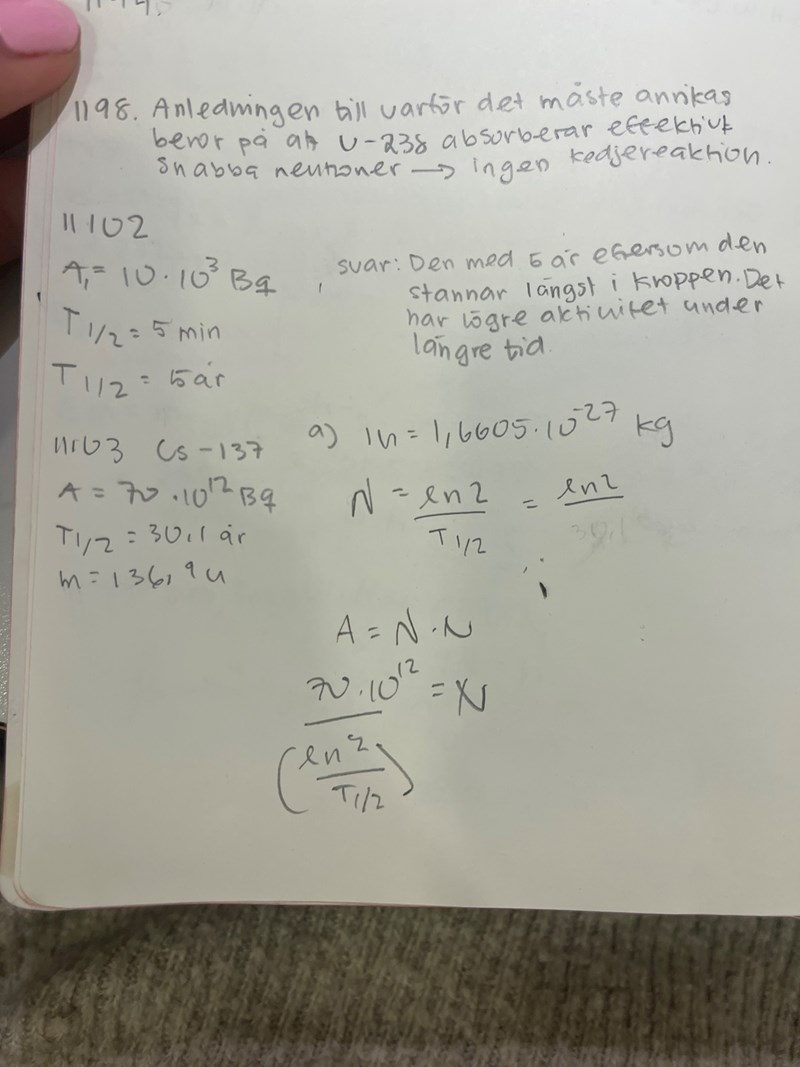 1198. Anledningen till varför det måste anrikas
beror på att U-238 absorberar effektivt
snabba neutroner → ingen kedjereaktion.
11102
A₁ = 10·10³ Bq
T 1/2 = 5 min
T 1/2 = 5 år
svar: Den med 5 år eftersom den
stannar längst i kroppen. Det
har lägre aktivitet under
längre tid.
11103 Cs-137
A = 70·10¹² Bq
T1/2 = 30,1 år
m = 136,9 u
a) 1u = 1,6605·10⁻²⁷ kg
λ = ln2 / T 1/2 = ln2 / 30,1
A = λ·N
70·10¹² / (ln2 / T1/2) = N